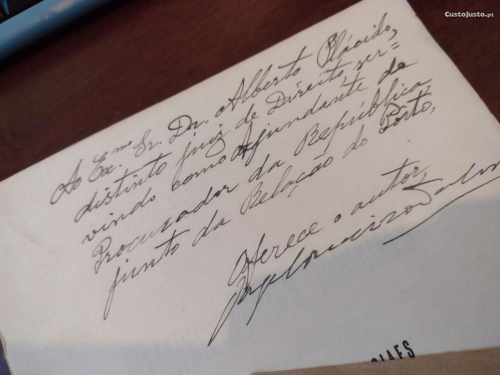 CustoJusto.pt
Ao Ex.mo Sr. Dr. Alberto Plácido,
distinto juiz de Direito ser=
vindo como ajundante de
Procurador da República
junto da Relação do Porto,
Oferece o autor,
CIAES